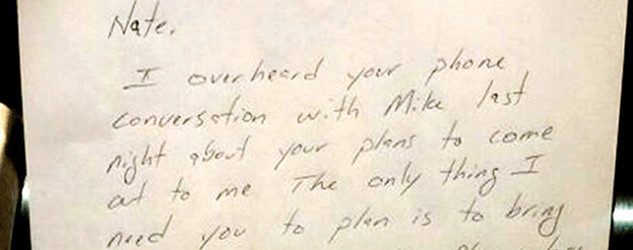 Nate,
I overheard your phone
conversation with Mike last
night about your plans to come
out to me The only thing I
need you to plan is to bring